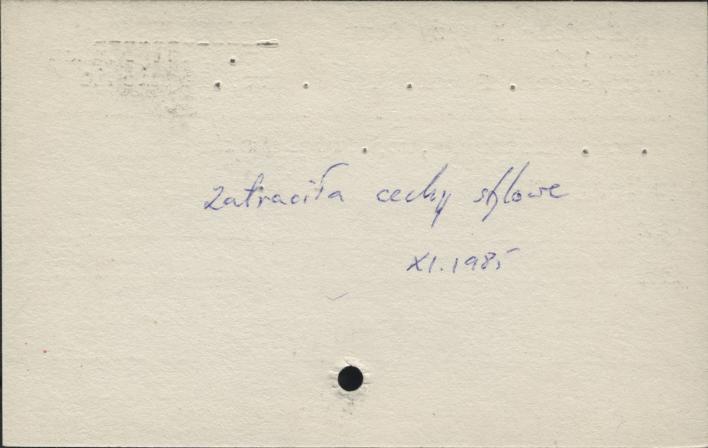 Zatraciła cechy stylowe
XI.1985